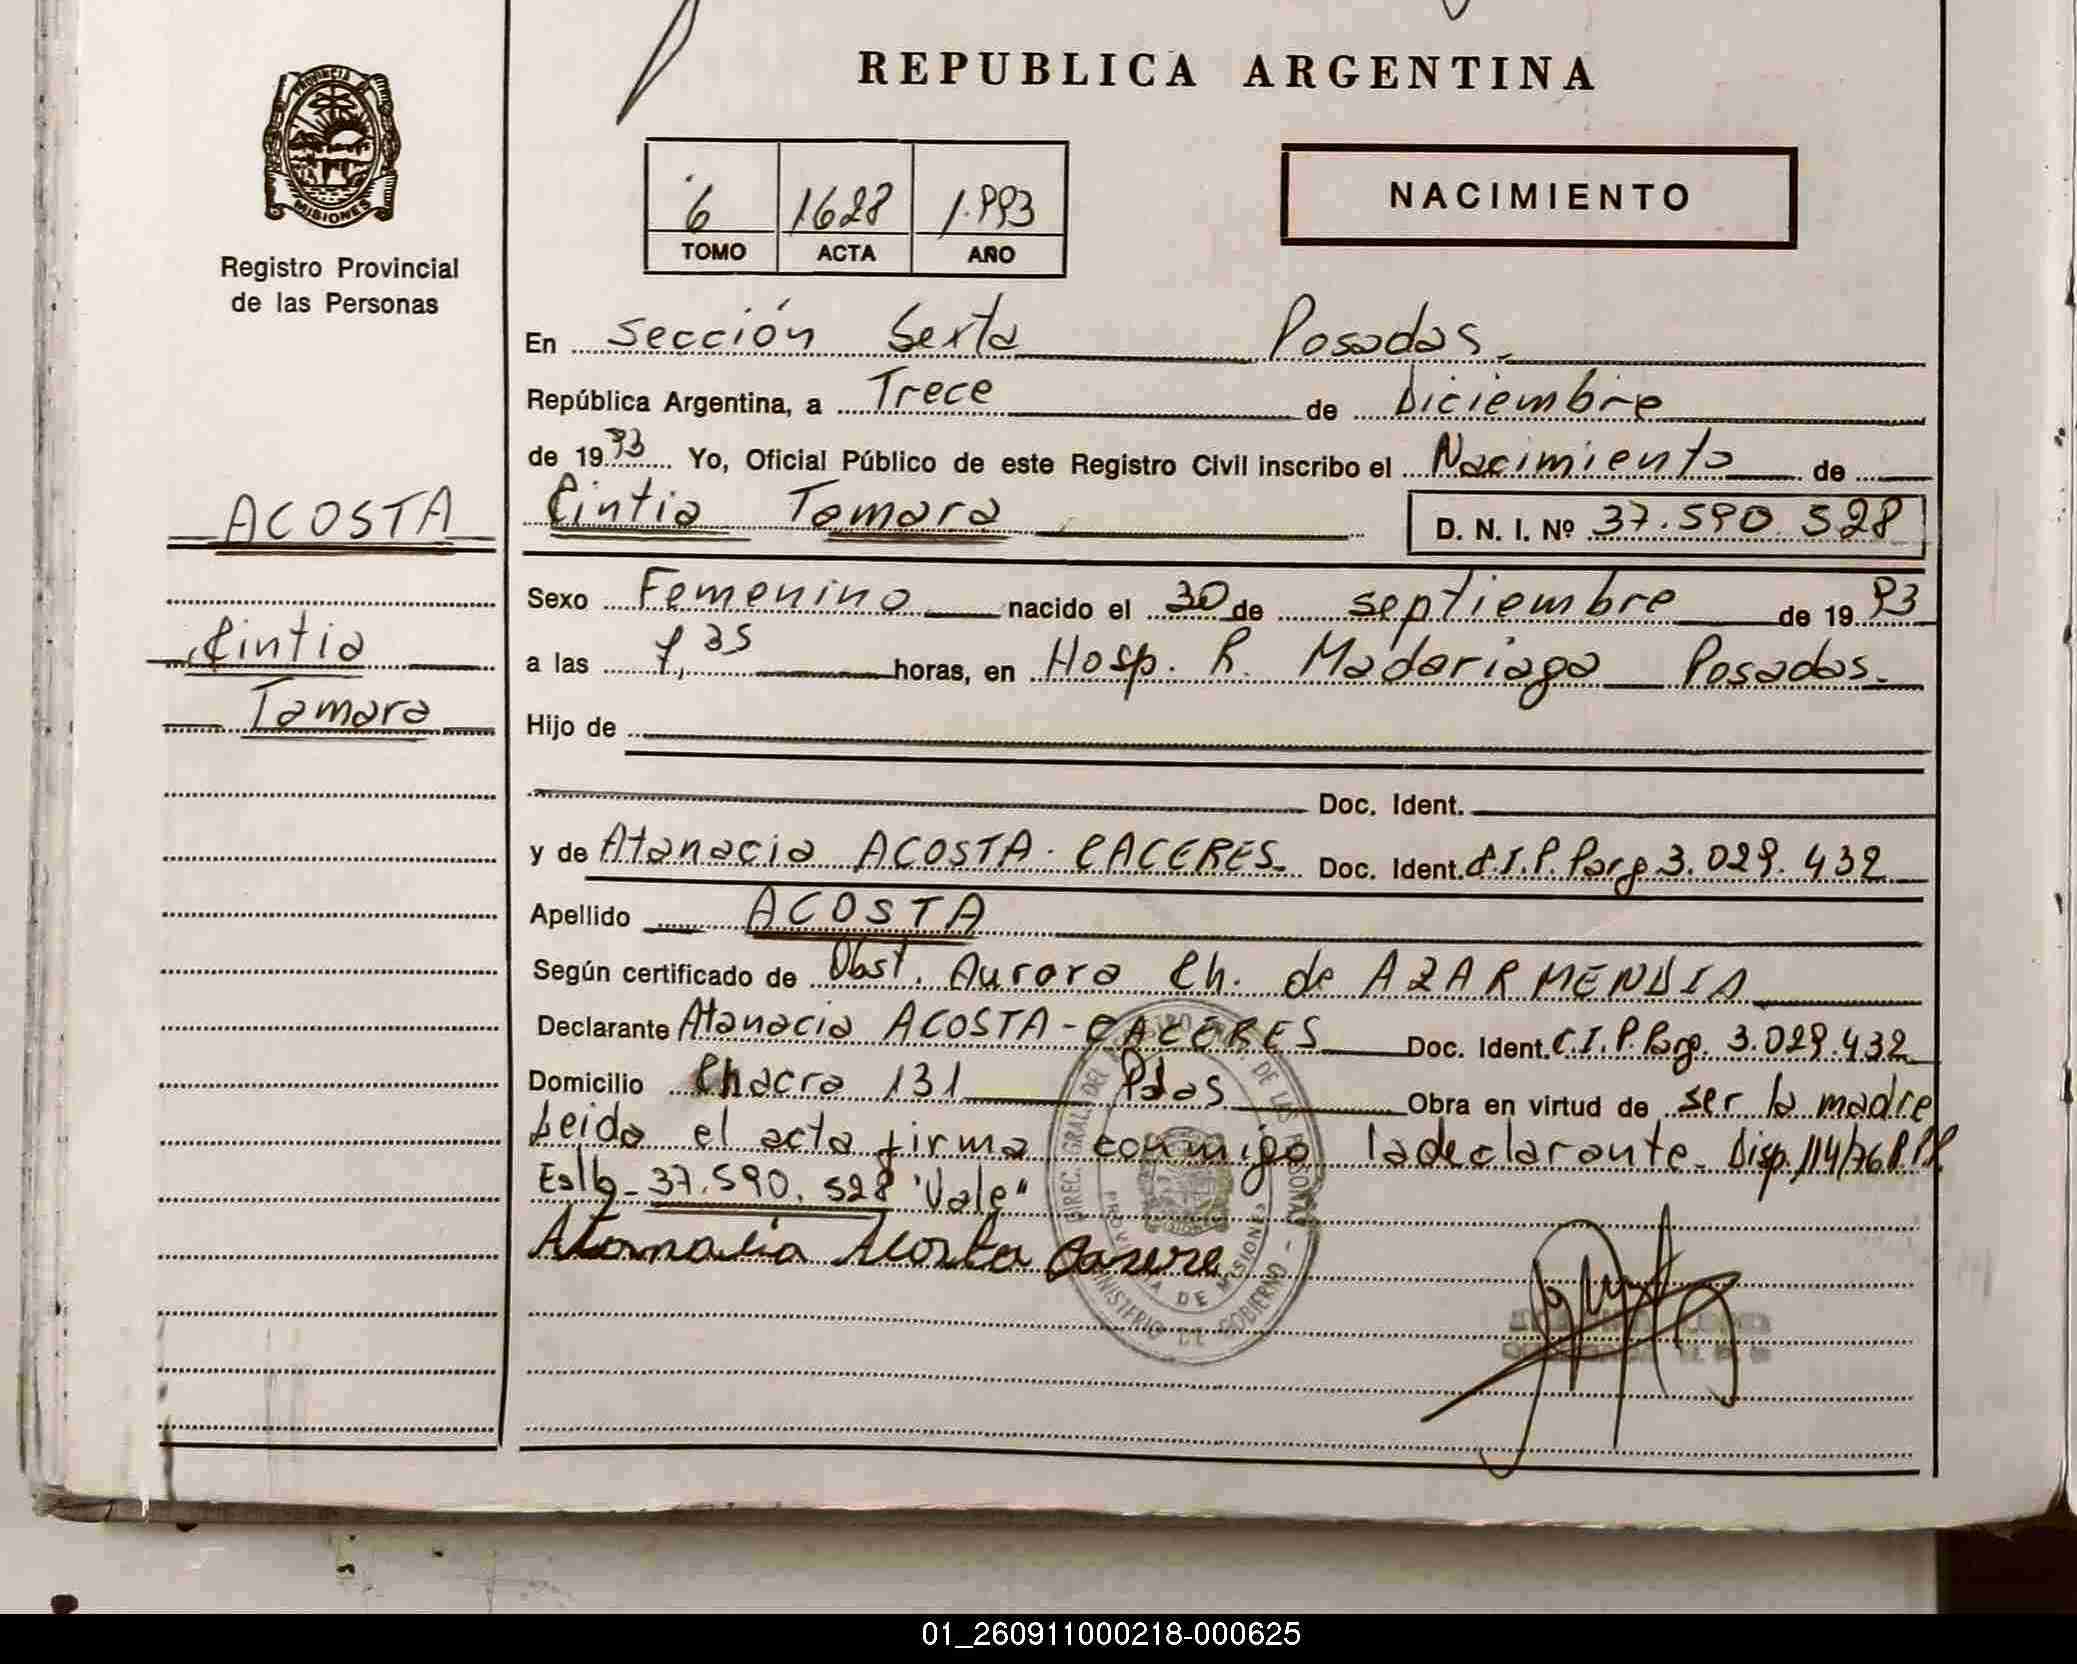 REPUBLICA ARGENTINA
PROVINCIA DE
MISIONES
Registro Provincial
de las Personas
6 1628 1.993
TOMO ACTA AÑO
NACIMIENTO
En Sección Sexta Posadas.
República Argentina, a Trece de Diciembre
de 1993 Yo, Oficial Público de este Registro Civil inscribo el Nacimiento de
ACOSTA
Cintia Tamara
D. N. I. Nº 37.590.528
Sexo Femenino nacido el 30 de septiembre de 1993
Cintia
Tamara
a las 7,35 horas, en Hosp. R. Madariaga Posadas.
Hijo de
Doc. Ident.
y de Atanacia ACOSTA - CACERES. Doc. Ident. C.I.P. Parg 3.029.432
Apellido ACOSTA
Según certificado de Obst. Aurora Ch. de AZARMENDIA
Declarante Atanacia ACOSTA - CACERES Doc. Ident. C.I.P. Parg. 3.029.432
Domicilio Chacra 131 Pdas Obra en virtud de ser la madre
Leida el acta firma conmigo la declarante. Disp. 114/76
37.590.528 "Vale"
Atanacia Acosta Casere
DIREC. GRAL. DEL DE LAS PERSONAS
PROVINCIA DE MISIONES
MINISTERIO DE GOBIERNO
01_260911000218-000625